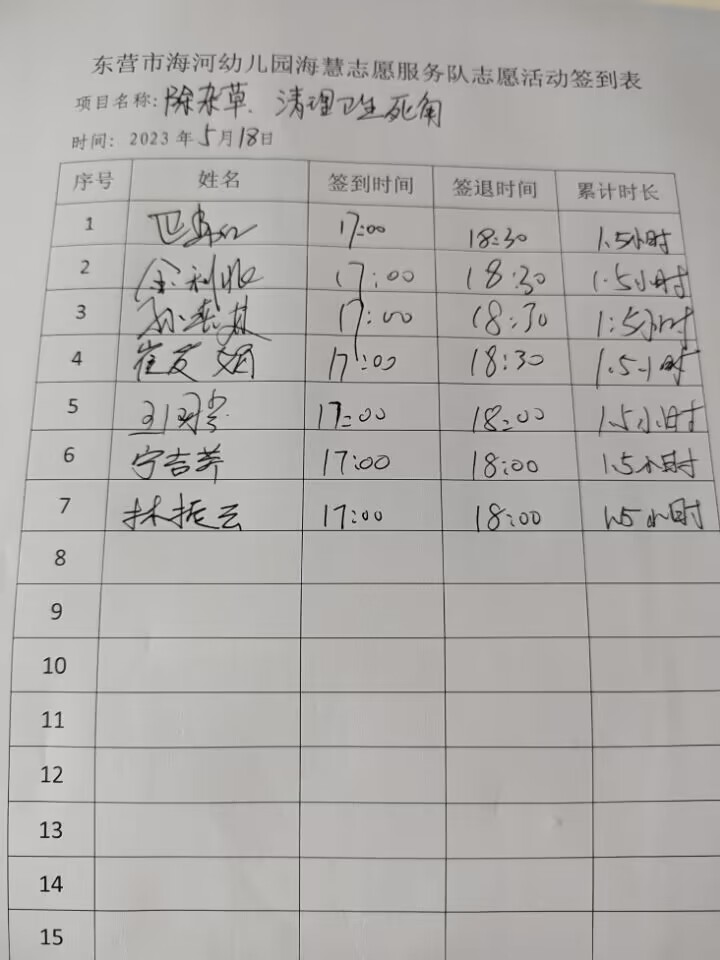 东营市海河幼儿园海慧志愿服务队志愿活动签到表
项目名称:除杂草、清理卫生死角
时间: 2023年5月18日
序号 姓名 签到时间 签退时间 累计时长
1 17:00 18:30 1.5小时
2 17:00 18:30 1.5小时
3 17:00 18:30 1.5小时
4 崔友娟 17:00 18:30 1.5小时
5 17:00 18:00 1.5小时
6 宁吉荞 17:00 18:00 1.5小时
7 林振云 17:00 18:00 1.5小时
8
9
10
11
12
13
14
15